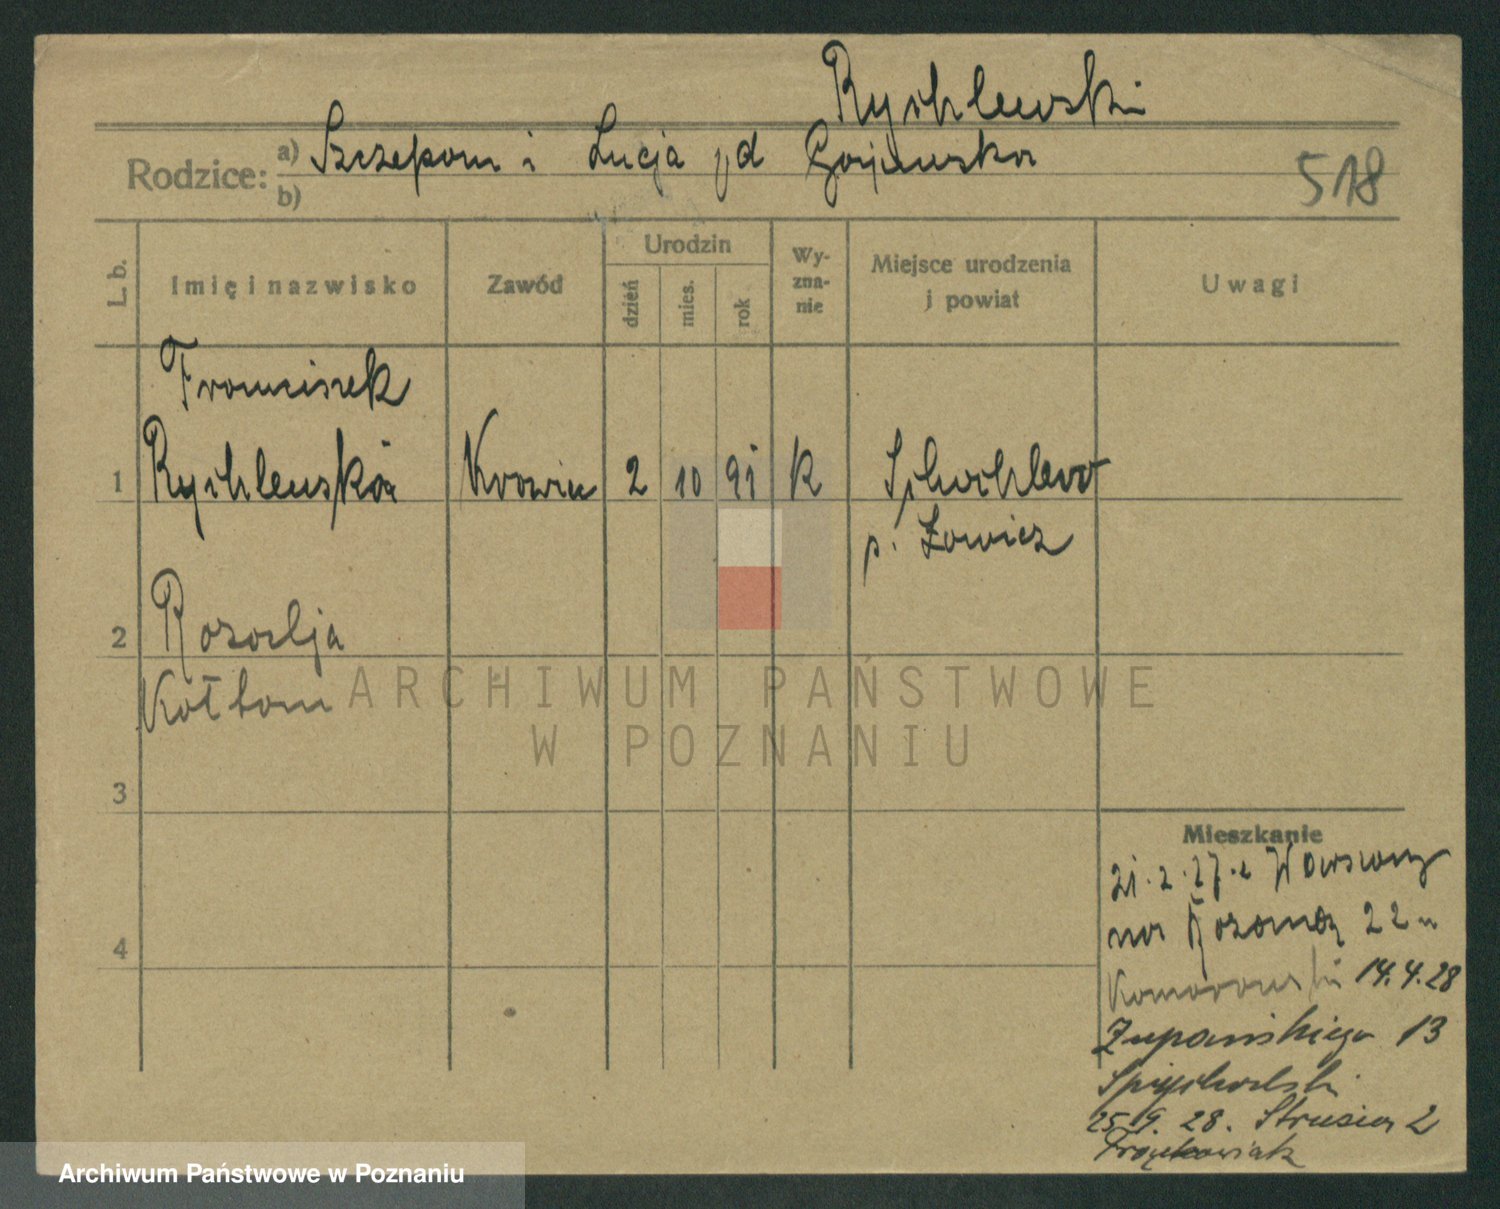 Rychlewski
Rodzice: a) Szczepan i Łucja zd Gajewska
b)
518
L. b.
Imię i nazwisko
Zawód
Urodzin
dzień
mies.
rok
Wy-
zna-
nie
Miejsce urodzenia
i powiat
Uwagi
Franciszek
1 Rychlewski Krawiec 2 10 91 k
p. Łowicz
2 Rozalja
3
4
Mieszkanie
21.2.27. z Warszawy
na Różana 22
Komorowski 14.4.28
Żupańskiego 13
Spychalski
25.9.28. Strusia 2
Frąckowiak
ARCHIWUM PAŃSTWOWE
W POZNANIU
Archiwum Państwowe w Poznaniu